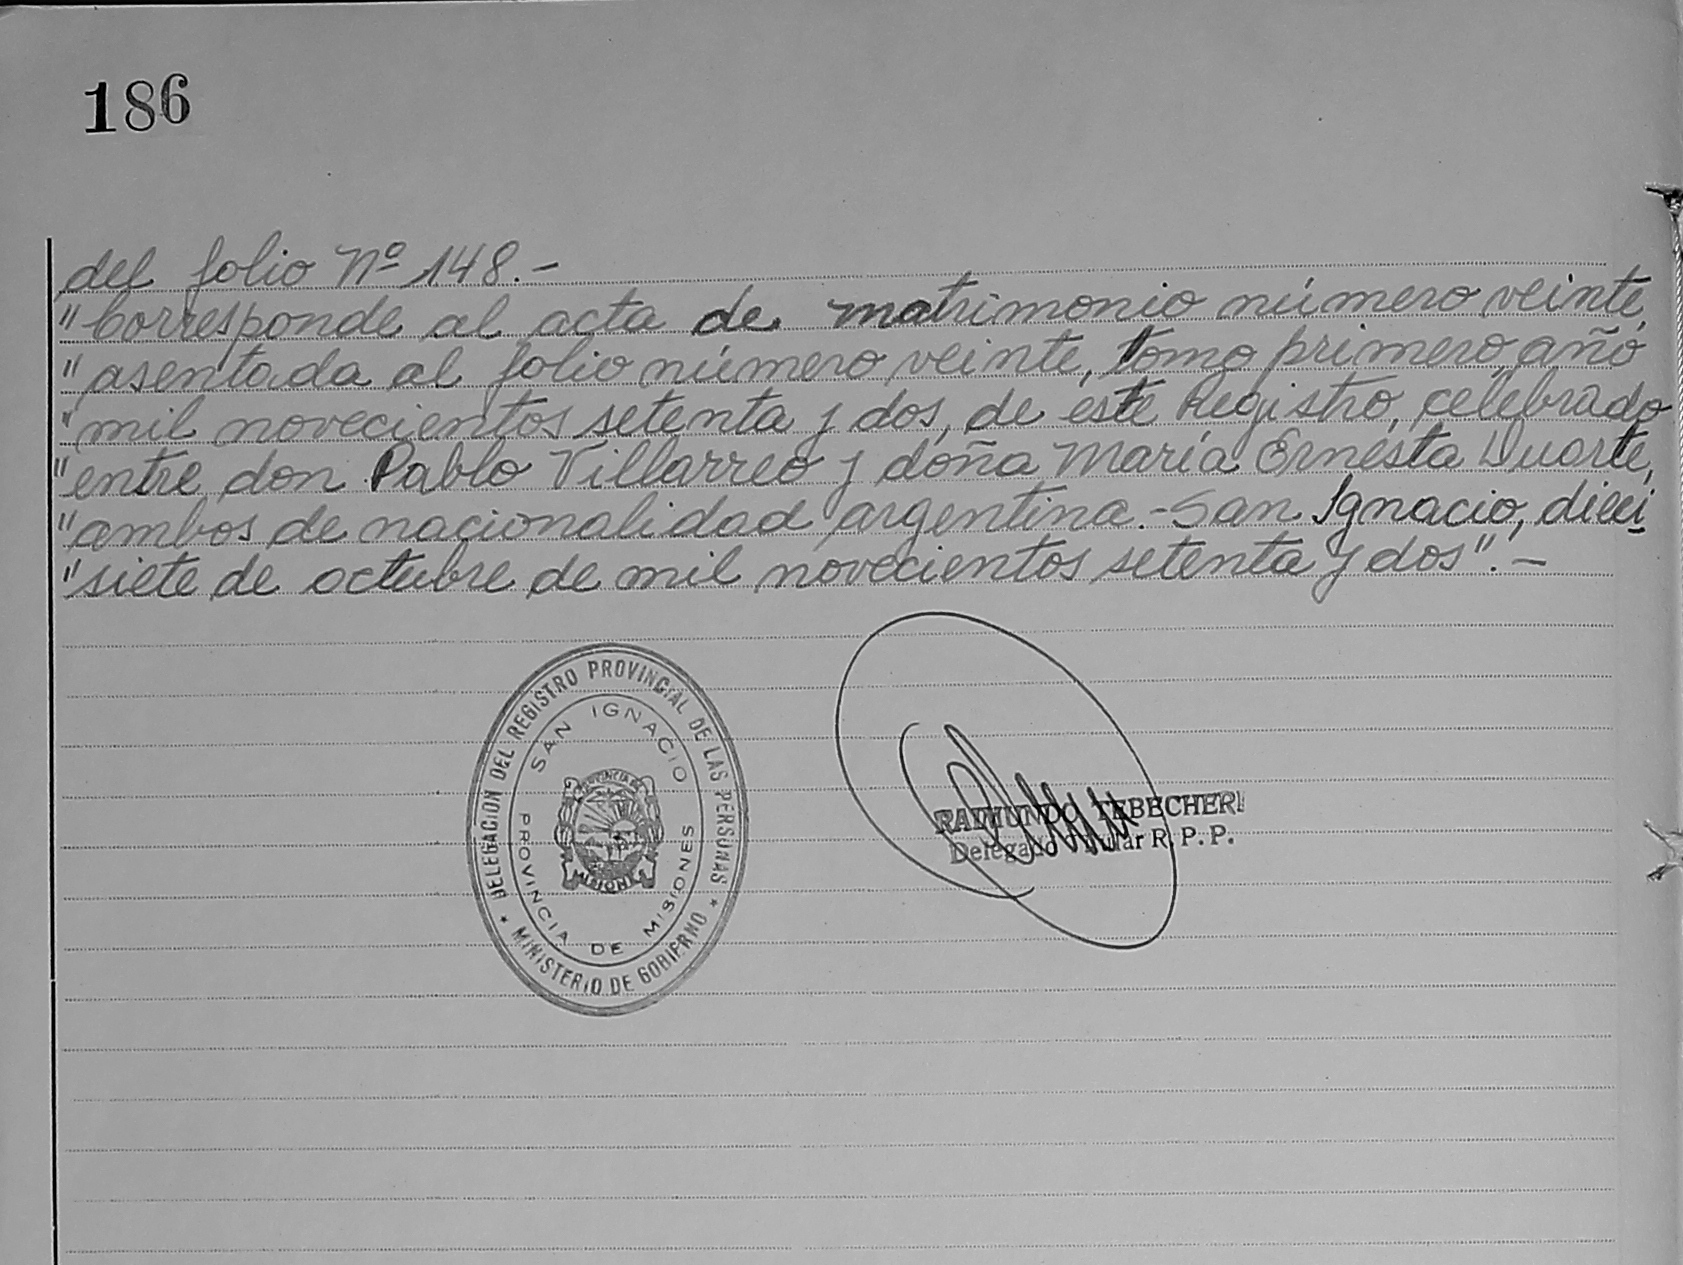 186
del folio Nº 148.-
"Corresponde al acta de matrimonio número veinte,
"asentada al folio número veinte, tomo primero, año
"mil novecientos setenta y dos, de este Registro, celebrado
"entre don Pablo Villarreo y doña María Ernesta Duarte,
"ambos de nacionalidad argentina.- San Ignacio, dieci
"siete de octubre de mil novecientos setenta y dos".-
DELEGACION DEL REGISTRO PROVINCIAL DE LAS PERSONAS
SAN IGNACIO
PROVINCIA DE MISIONES
* MINISTERIO DE GOBIERNO *
RAIMUNDO TEBECHERI
Delegado Titular R. P. P.